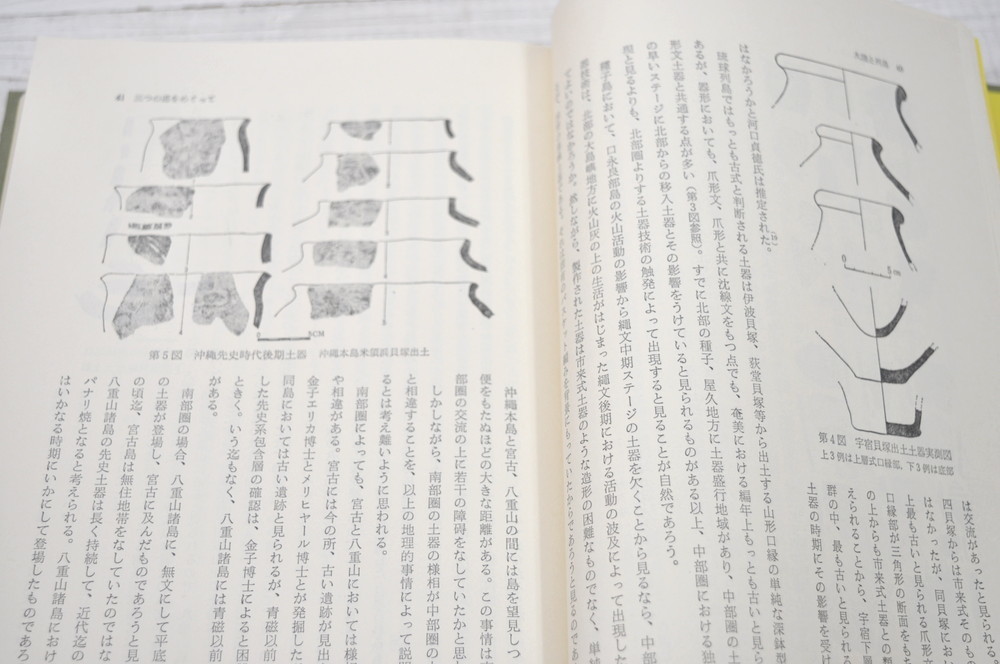 大陸と列島 40
はなかろうかと河口貞徳氏は推定された。
琉球列島ではもっとも古式と判断される土器は伊波貝塚、荻堂貝塚等から出土する山形口縁の単純な深鉢型
あるが、器形においても、爪形文、爪形と共に沈線文をもつ点でも、奄美における編年上もっとも古いと見ら
形文土器と共通する点が多い(第3図参照)。すでに北部の種子、屋久地方に土器盛行地域があり、中部圏の土
の早いステージに北部からの移入土器とその影響をうけていると見られるものがある以上、中部圏における独
現と見るよりも、北部圏よりする土器技術の触発によって出現すると見ることが自然であろう。
種子島において、口永良部島の火山活動の影響から縄文中期ステージの土器を欠くことから見るなら、中部
器技術は、北部の大島嶼地方に火山灰の上の生活がはじまった縄文後期における活動の波及によって出現した
てよいのではなかろうか。然しながら、製作された土器は市来式土器のような造形の困難なものでなく、単純
5cm
第4図 宇宿貝塚出土土器実測図
上3例は上層式口縁部、下3例は底部
は交流があったと見られ
四貝塚からは市来式そのもの
はなかったが、同貝塚におい
上最も古いと見られる爪形
口縁部が三角形の断面をも
の上からも市来式土器との類
えられることから、宇宿下層
群の中、最も古いと見られる
土器の時期にその影響を受け
41 三つの圏をめぐって
5CM
第5図 沖縄先史時代後期土器 沖縄本島米須浜貝塚出土
沖縄本島と宮古、八重山の間には島を望見しつ
便をもたぬほどの大きな距離がある。この事情は
部圏の交流の上に若干の障碍をなしていたかと思
しかしながら、南部圏の土器の様相が中部圏の
と相違することを、以上の地理的事情によって説明
るとは考え難いように思われる。
南部圏によっても、宮古と八重山においては様
や相違がある。宮古には今の所、古い遺跡が見出
金子エリカ博士とメリヒヤール博士とが発掘した
同島においては古い遺跡と見られるが、青磁以前
した先史系包含層の確認は、金子博士によると困
ときく。いう迄もなく、八重山諸島には青磁以前
がある。
南部圏の場合、八重山諸島に、無文にして平底
の土器が登場し、宮古に及んだものであろうと見
の頃迄、宮古島は無住地帯をなしていたのではな
八重山諸島の先史土器は長く持続して、近代迄の
パナリ焼となると考えられる。八重山諸島におけ
はいかなる時期にいかにして登場したものであろ